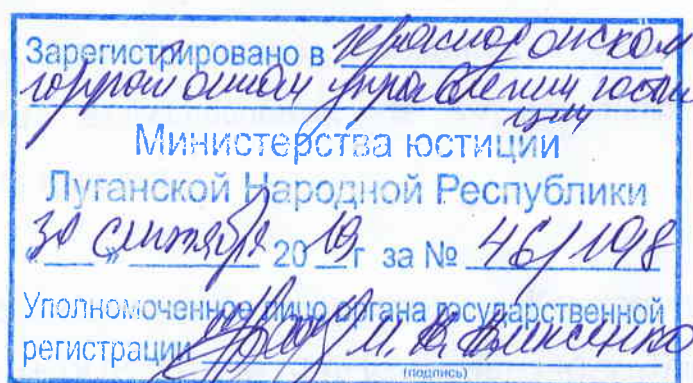 Зарегистрировано в Краснодонском
городском управлении юстиции
Министерства юстиции
Луганской Народной Республики
"30" сентября 2019 г за № 46/198
Уполномоченное лицо органа государственной
регистрации
(подпись)